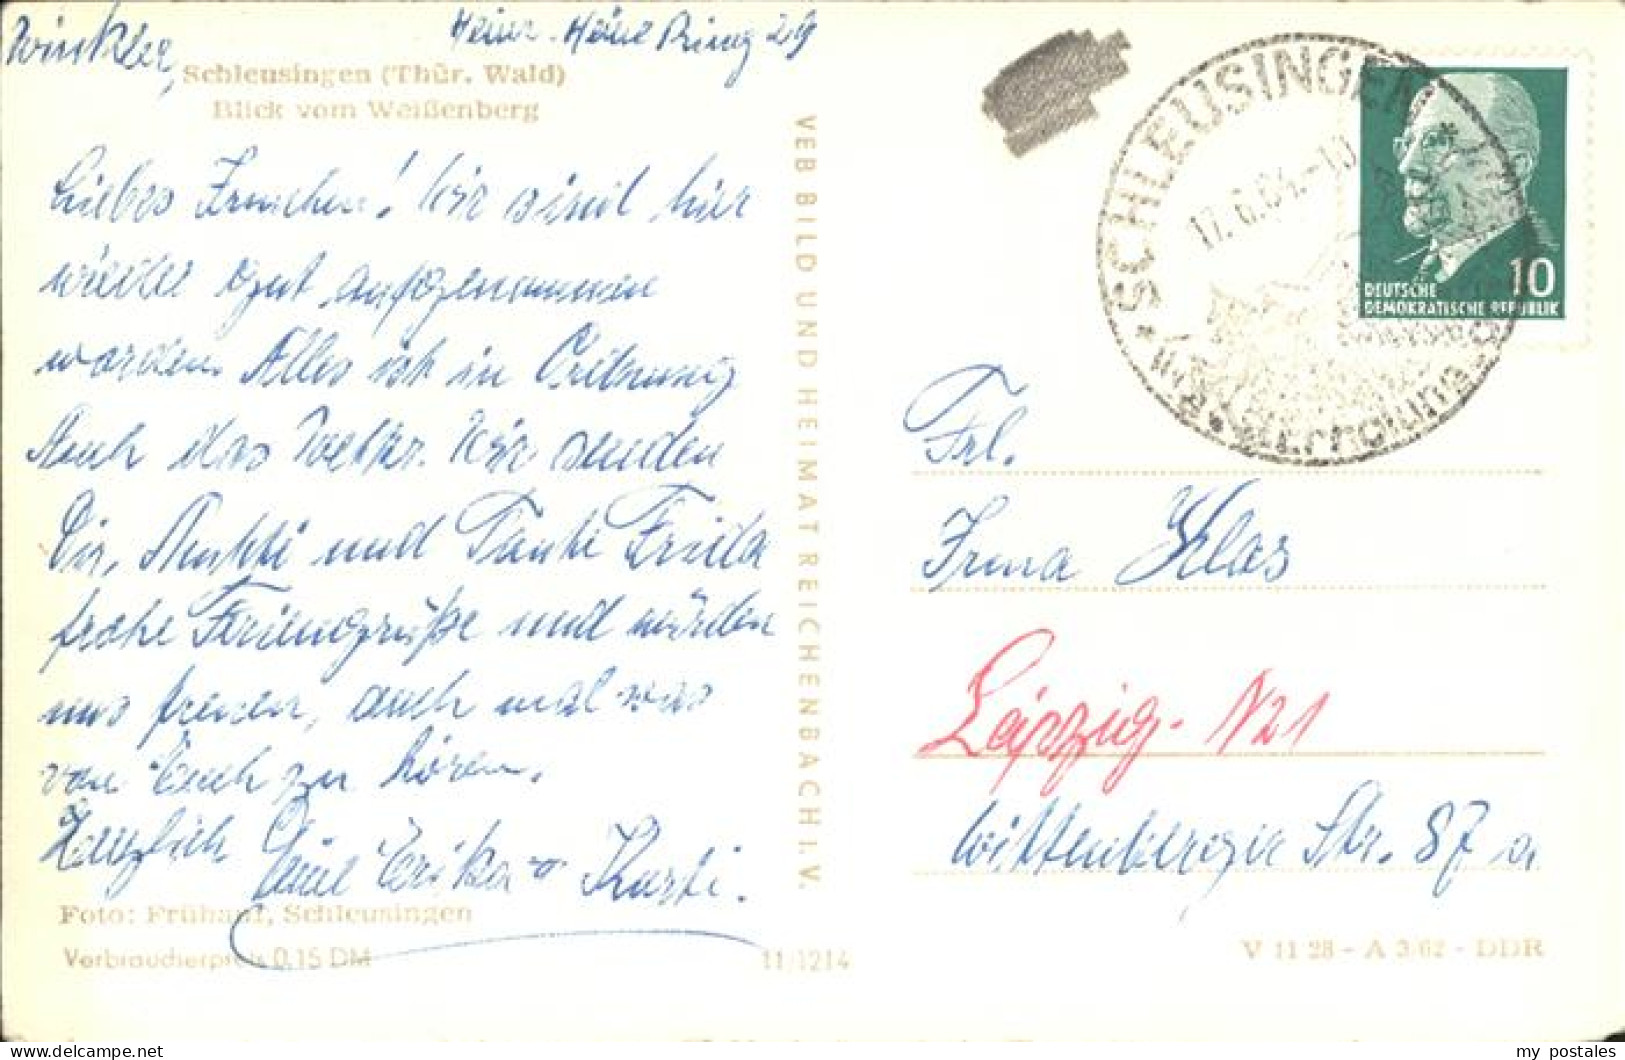 Winkler, Heinr.-Heine Ring 29
Schleusingen (Thür. Wald)
Blick vom Weißenberg
Liebes Irmchen! Wir sind hier
wieder gut aufgenommen
worden. Alles ist in Ordnung
Auch das Wetter. Wir senden
Dir, Mutti und Tante Frieda
frohe Feriengrüße und würden
uns freuen, auch mal was
von Euch zu hören.
Herzlich Deine Erika u Kurti.
Foto: Frühauf, Schleusingen
Verbraucherpreis 0,15 DM
11/1214
VEB BILD UND HEIMAT REICHENBACH I. V.
SCHLEUSINGEN
17.6.64.-10
DEUTSCHE
DEMOKRATISCHE REPUBLIK
10
Frl.
Irma Klas
Leipzig- N21
Wittenberger Str. 87 a
V 11 28 - A 3/62 - DDR
my postales